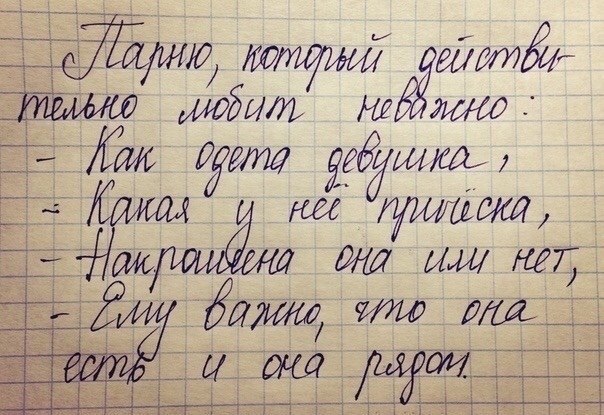 Парню, который действи-
тельно любит неважно:
- Как одета девушка,
- Какая у неё причёска,
- Накрашена она или нет,
- Ему важно, что она
есть и она рядом.